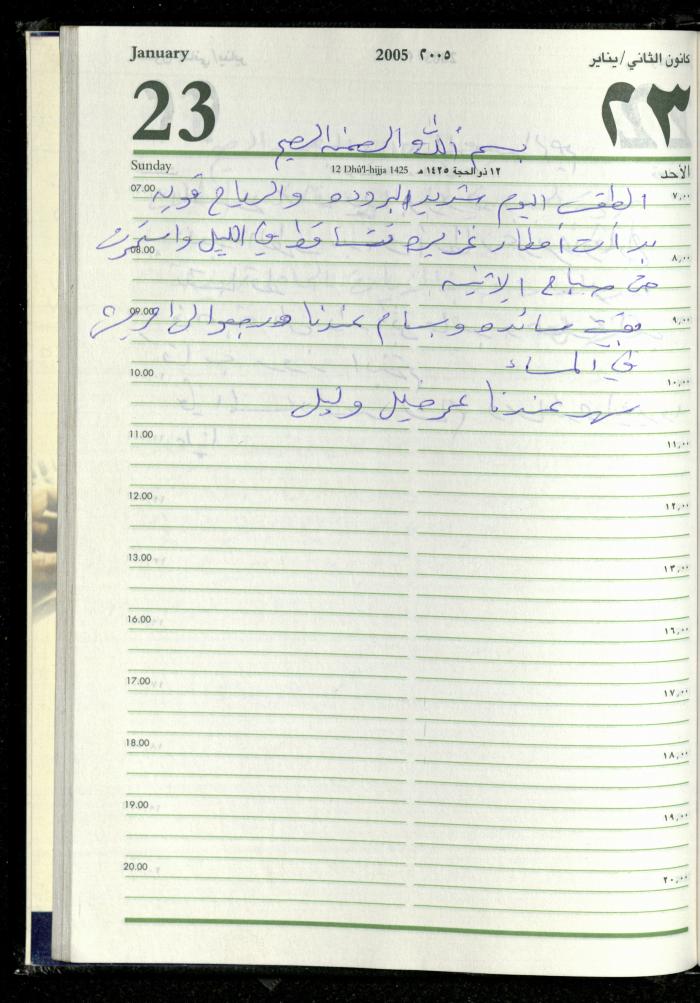 January 2005 ٢٠٠٥ كانون الثاني/يناير
23 ٢٣
بسم الله الرحمن الرحيم
Sunday 12 Dhū'l-hijja 1425 ١٢ ذو الحجة ١٤٢٥ هـ الأحد
07.00 ٧,٠٠
الطقس اليوم شديد البروده والرياح قويه
بدأت أمطار غزيره تتساقط في الليل واستمرت
08.00 ٨,٠٠
حتى صباح الاثنين
09.00 ٩,٠٠
بقيت سائده وبسام عندنا ورجعوا الى
في المساء
10.00 ١٠,٠٠
سهر عندنا عمر خليل
11.00 ١١,٠٠
12.00 ١٢,٠٠
13.00 ١٣,٠٠
16.00 ١٦,٠٠
17.00 ١٧,٠٠
18.00 ١٨,٠٠
19.00 ١٩,٠٠
20.00 ٢٠,٠٠